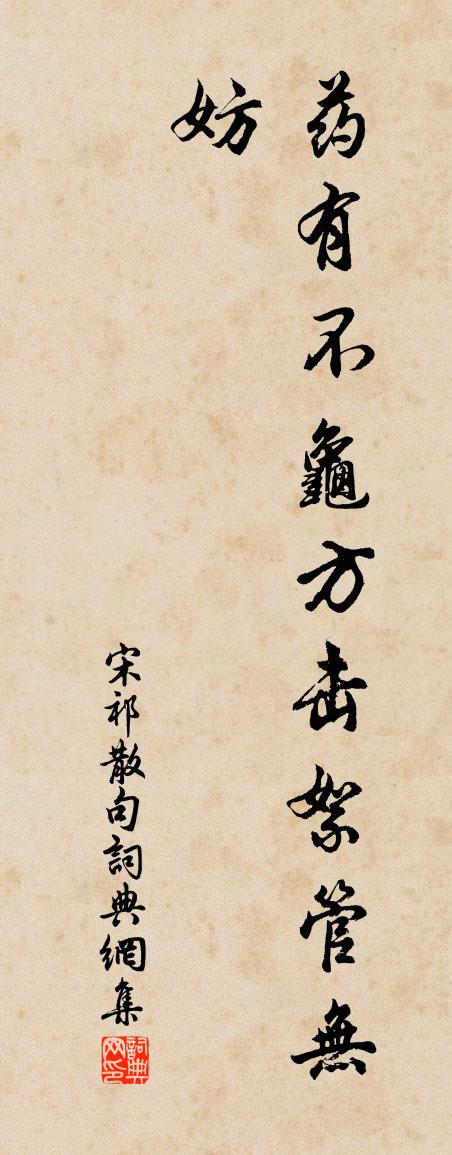 药有不龜方击絮管無
妨
宋祁散句詞典網集
詞典
网印